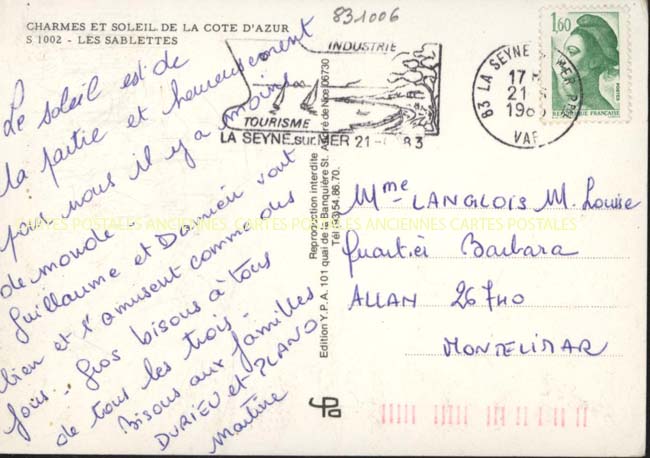 831006
CHARMES ET SOLEIL DE LA COTE D'AZUR
S 1002 - LES SABLETTES
INDUSTRIE
TOURISME
LA SEYNE sur MER 21- 83
83 LA SEYNE MER
17 H
21
198
VAR
1,60
POSTES
REPUBLIQUE FRANÇAISE
Le soleil est de
la partie et heureusement
pour nous il y a moins
de monde -
Guillaume et Damien vont
bien et s'amusent comme des
fous - Gros bisous à tous
de tous les trois -
Bisous aux familles
DURIEU et PLANO
Martine
Reproduction interdite
Edition Y.P.A. 101 quai de la Banquière St. André de Nice 06730
Tél (93) 54.86.70.
Mme LANGLOIS M. Louise
Quartier Barbara
ALLAN 26740
MONTELIMAR
CARTES POSTALES ANCIENNES CARTES POSTALES ANCIENNES CARTES POSTALES